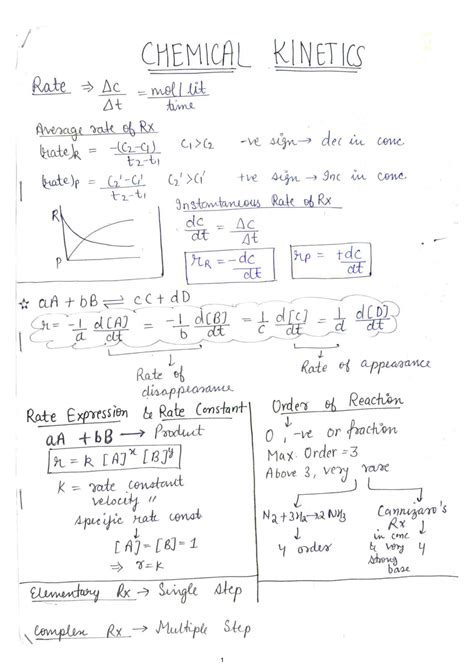 CHEMICAL KINETICS
Rate ⇒ Δc/Δt = mol/lit/time
Average rate of Rx
(rate)R = -(C2-C1)/t2-t1 C1>C2 -ve sign → dec in conc.
(rate)P = C2'-C1'/t2-t1 C2'>C1' +ve sign → Inc in conc.
Instantaneous Rate of Rx
R
P
dc/dt = Δc/Δt
rR = -dc/dt
rP = +dc/dt
☆ aA + bB ⇌ cC + dD
r = -1/a d[A]/dt = -1/b d[B]/dt = 1/c d[C]/dt = 1/d d[D]/dt
↓
Rate of disappearance
↓
Rate of appearance
Rate Expression & Rate Constant
aA + bB → Product
r = k [A]^x [B]^y
K = rate constant
velocity "
specific rate const
↓
[A] = [B] = 1
⇒ r = K
Order of Reaction
↓
0, -ve or fraction
Max. Order = 3
Above 3, very rare
N2 + 3H2 → 2NH3
↓
4 order
Cannizaro's
Rx
in conc
& very
strong
base
↓
4
Elementary Rx → Single Step
Complex Rx → Multiple Step
1